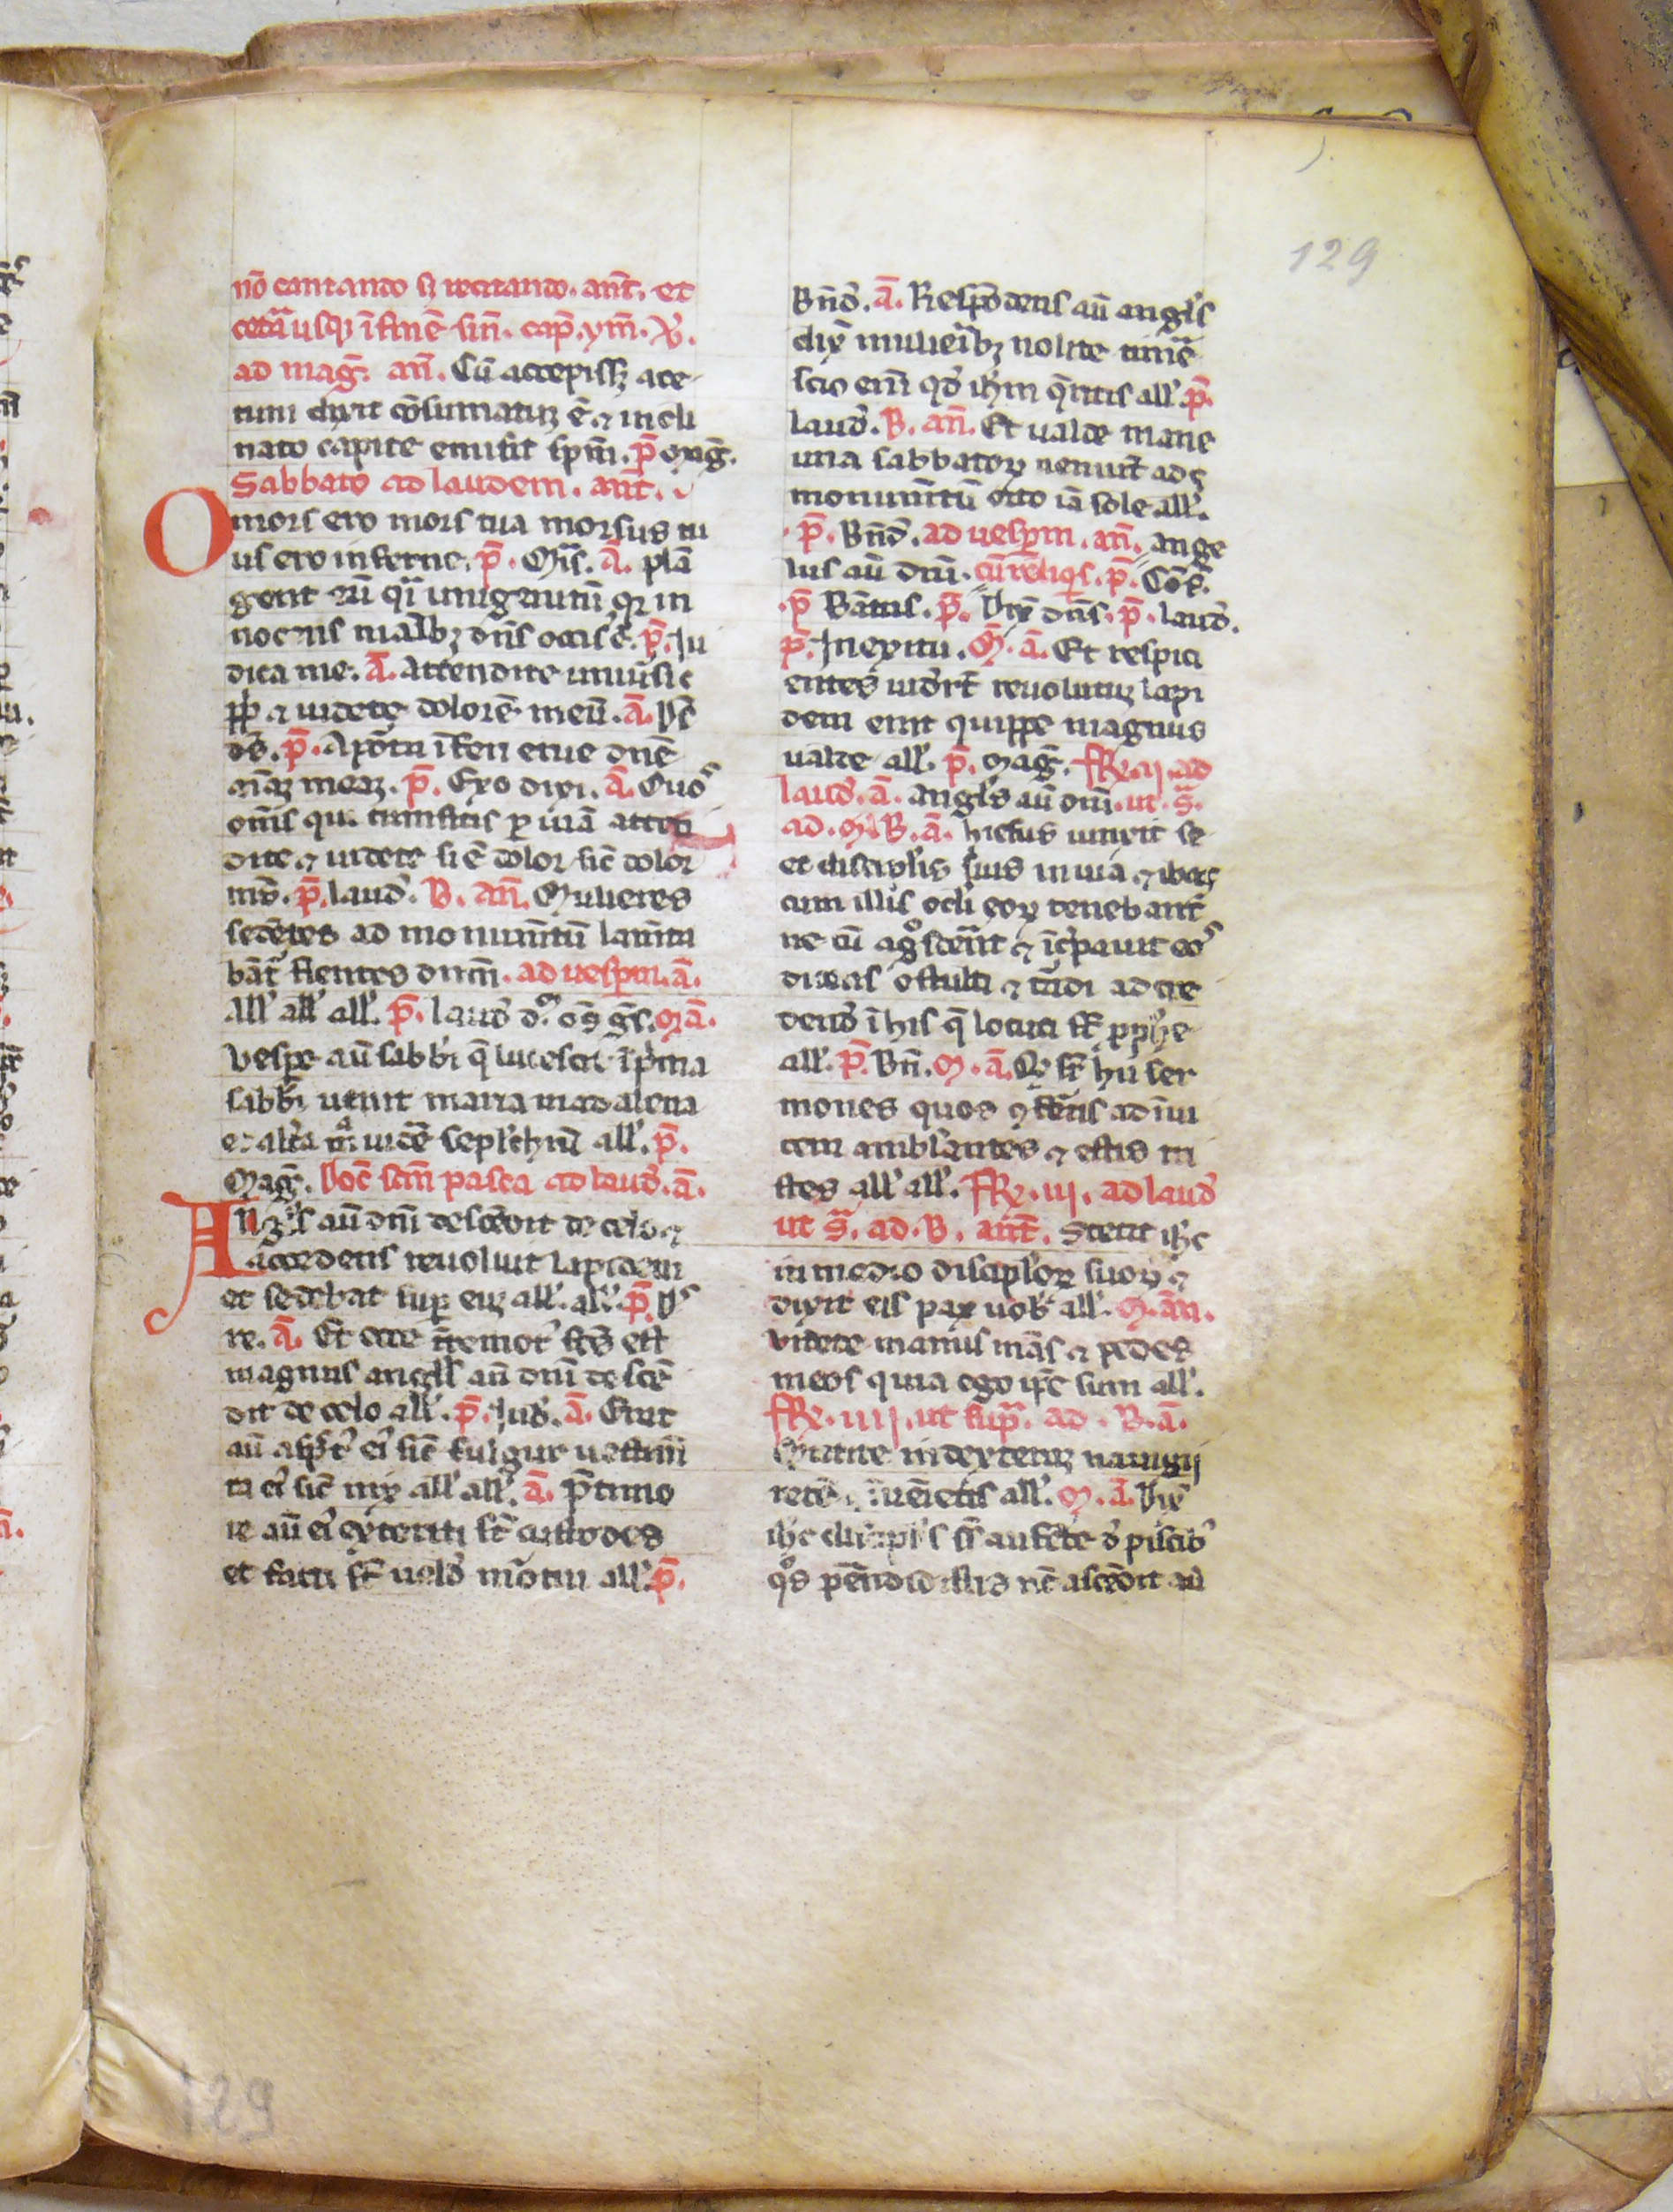 129
nō cantando sꝫ recitando. ant̄. et
cetͣa usqꝫ ī finē sin̄. cap̄. ym̄. v̄.
ad mag̅. an̄. Cū accepissꝫ ace
tum dixit cōsumatuꝫ ē ⁊ incli
nato capite emisit sp̄m. p̄ mag̅.
Sabbato ad laudem. ant̄.
O mors ero mors tua morsus tu
us ero inferne. p̄. Mis̄. ā. plā
gent eū qͣi unigenitū qꝛ in
nocens dn̄s occis᷒ ē. p̄. Iu
dica me. ā. Attendite uniūsi
pp̄li ⁊ uidete dolorē meū. ā. Ds̄
ds̄. p̄. A porta īferi erue dn̄e
aīaꝫ meaꝫ. p̄. Ego dixi. ā. O uos
om̄s qui transitis ꝑ uiā atten
dite ⁊ uidete si ē dolor sic̄ dolor
ms̄. p̄. laud̄. B. an̄. Mulieres
sedētes ad monumn̄tū lamn̄ta
bāt᷒ flentes dnm̄. ad uesꝑm. ā.
all̄ all̄ all̄. p̄. laud̄ d. om̄s gs̄. m ā.
Vespe aū sabb̄i q̄ lucescit ī pͥma
sabb̄i uenit maria madalena
et alt̄a mͣ uidē sepl̄chrū all̄. p̄.
Mag̅. Doc̄ scm̄ pasca ad laud̄. ā.
Angl̄s aū dn̄i descēdit de celo ⁊
accedens reuoluit lapidem
et sedebat suꝑ euꝫ all̄. all̄. p̄. Ds̄
re. ā. Et ecce t̄remot᷒ fcs̄ est
magnus angl̄s aū dn̄i descē
dit de celo all̄. p̄. Iub̄. ā. Erat
aū asp̄c̄t᷒ ei᷒ sic̄ fulgur uestim̄
ta ei᷒ sic̄ nix all̄ all̄. ā. p̄ timo
re aū ei᷒ exteriti st̄ custodes
et facti st̄ uelud̄ mōtui all̄. p̄.
Bn̄d̄. ā. Respōdens aū angl̄s
dix̄ mulieribꝫ nolite timē
scio eni̅ qd̄ ih̄m q̄ritis all̄. p̄.
laud̄. B. an̄. Et ualde mane
una sabbatoꝝ ueniūt ad
monumn̄tū orto iā sole all̄.
p̄. Bn̄d̄. ad uesꝑm. an̄. Ange
lus aū dn̄i. cū reliqͥs. p̄. Cōf̄.
p̄ Bātus. p̄. Dix̄ dn̄s. p̄. laud̄.
p̄. In exitu. M. ā. Et respici
entes uidert̄ reuolutuꝫ lapi
dem erat quippe magnus
ualde all̄. p̄. mag̅. fRe. ij. ad
laud̄. ā. Angl̄s aū dn̄i. ut s̄.
ad. B. ā. hiesus iunxit se
et discipl̄is suis in uia ⁊ ibat
cum illis ocl̄i eoꝝ tenebant᷒
ne eū agͦscerēt ⁊ īcͥpauit eos
dicens o stulti ⁊ tardi ad cre
dend̄ ī his q̄ locuti st̄ ꝓph̄e
all̄. p̄. Bn̄. M. ā. Qͥ st̄ hij ser
mones quos ꝯfertis ad inui
cem ambl̄antes ⁊ estis tri
stes all̄ all̄. fRe. iij. ad laud̄
ut s̄. ad. B. ant̄. Stetit ih̄c
in medio discipl̄oꝝ suoꝝ ⁊
dixit eis pax uob᷒ all̄. M. ān.
Videte manus mās ⁊ pedes
meos quia ego ip̄e sum all̄.
fRe. iiij. ut supͣ. ad. B. ā.
Mittite in dexteraꝫ nauigij
retē ⁊ īuēietis all̄. M. ā. Dix̄
ih̄c discipl̄s s̄ afferte d̄ piscib᷒
qͦs pēndidistis nc̄ ascēdit aū
129